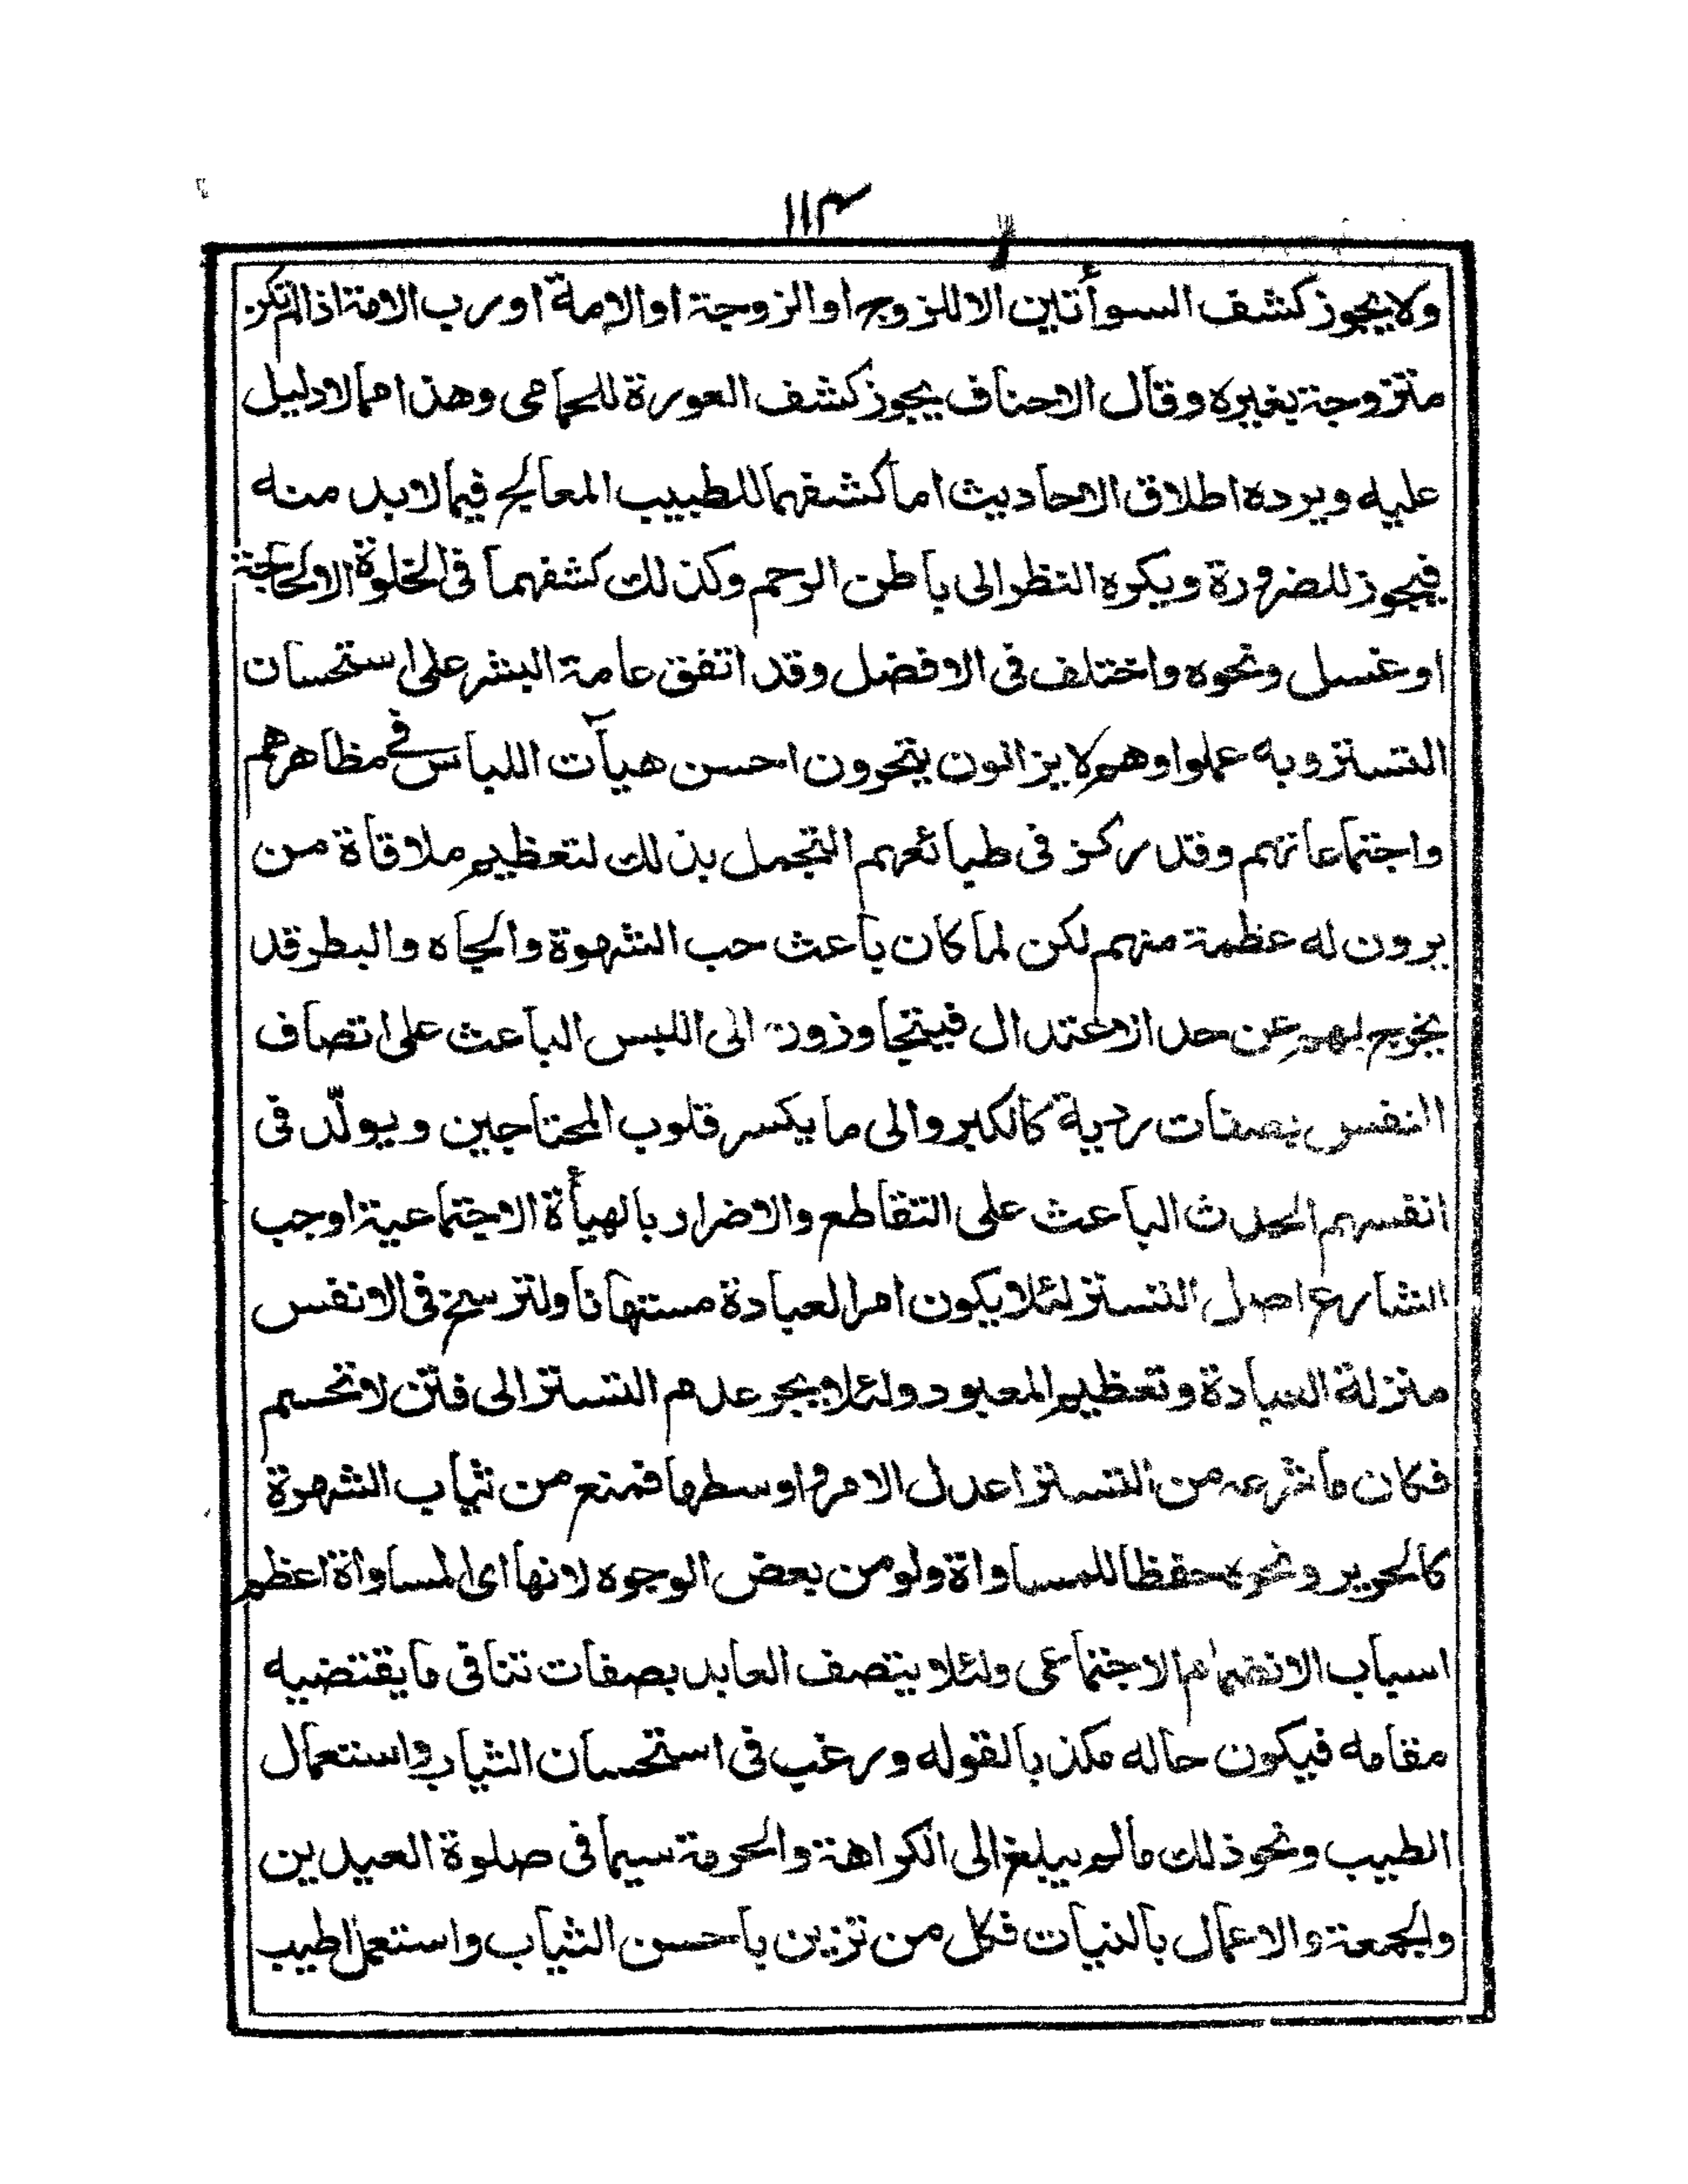 ١١٣
ولا يجوز كشف السوأتين الا للزوج او الزوجة او الامة او رب الامة اذا لم تكن
متزوجة بغيره وقال الاحناف يجوز كشف العورة للحمامى وهذا مما لا دليل
عليه ويرده اطلاق الاحاديث اما كشفهما للطبيب المعالج فيما لا بد منه
فيجوز للضرورة ويكره النظر الى باطن الرحم وكذلك كشفهما فى الخلوة الا لحاجة
او غسل ونحوه واختلف فى الافضل وقد اتفق عامة البشر على استحسان
التستر وبه عملوا وهم لا يزالون يتحرون احسن هيآت اللباس فى مظاهرهم
واجتماعاتهم وقد ركز فى طبائعهم التجمل بذلك لتعظيم ملاقاة من
يرون له عظمة منهم لكن لما كان باعث حب الشهوة والجاه والبطر قد
يخرج بهم عن حد الاعتدال فيتجاوزون الى اللبس الباعث على اتصاف
النفس بصفات ردية كالكبر والى ما يكسر قلوب المحتاجين ويولّد فى
انفسهم الحدث الباعث على التقاطع والاضرار بالهيأة الاجتماعية اوجب
الشارع اصل التستر لئلا يكون امر العبادة مستهانا ولترسخ فى الانفس
منزلة العبادة وتعظيم المعبود ولئلا يجر عدم التستر الى فتن لا تحسم
فكان ما شرعه من التستر اعدل الامور واوسطها فمنع من ثياب الشهرة
كالحرير ونحوه حفظا للمساواة ولو من بعض الوجوه لانها اى المساواة اعظم
اسباب الانضمام الاجتماعى ولئلا يتصف العابد بصفات تنافى ما يقتضيه
مقامه فيكون حاله مكذبا لقوله ورغب فى استحسان الثياب واستعمال
الطيب ونحو ذلك ما لم يبلغ الى الكراهة والحرمة سيما فى صلوة العيدين
والجمعة والاعمال بالنيات فكل من تزين باحسن الثياب واستعمل اطيب